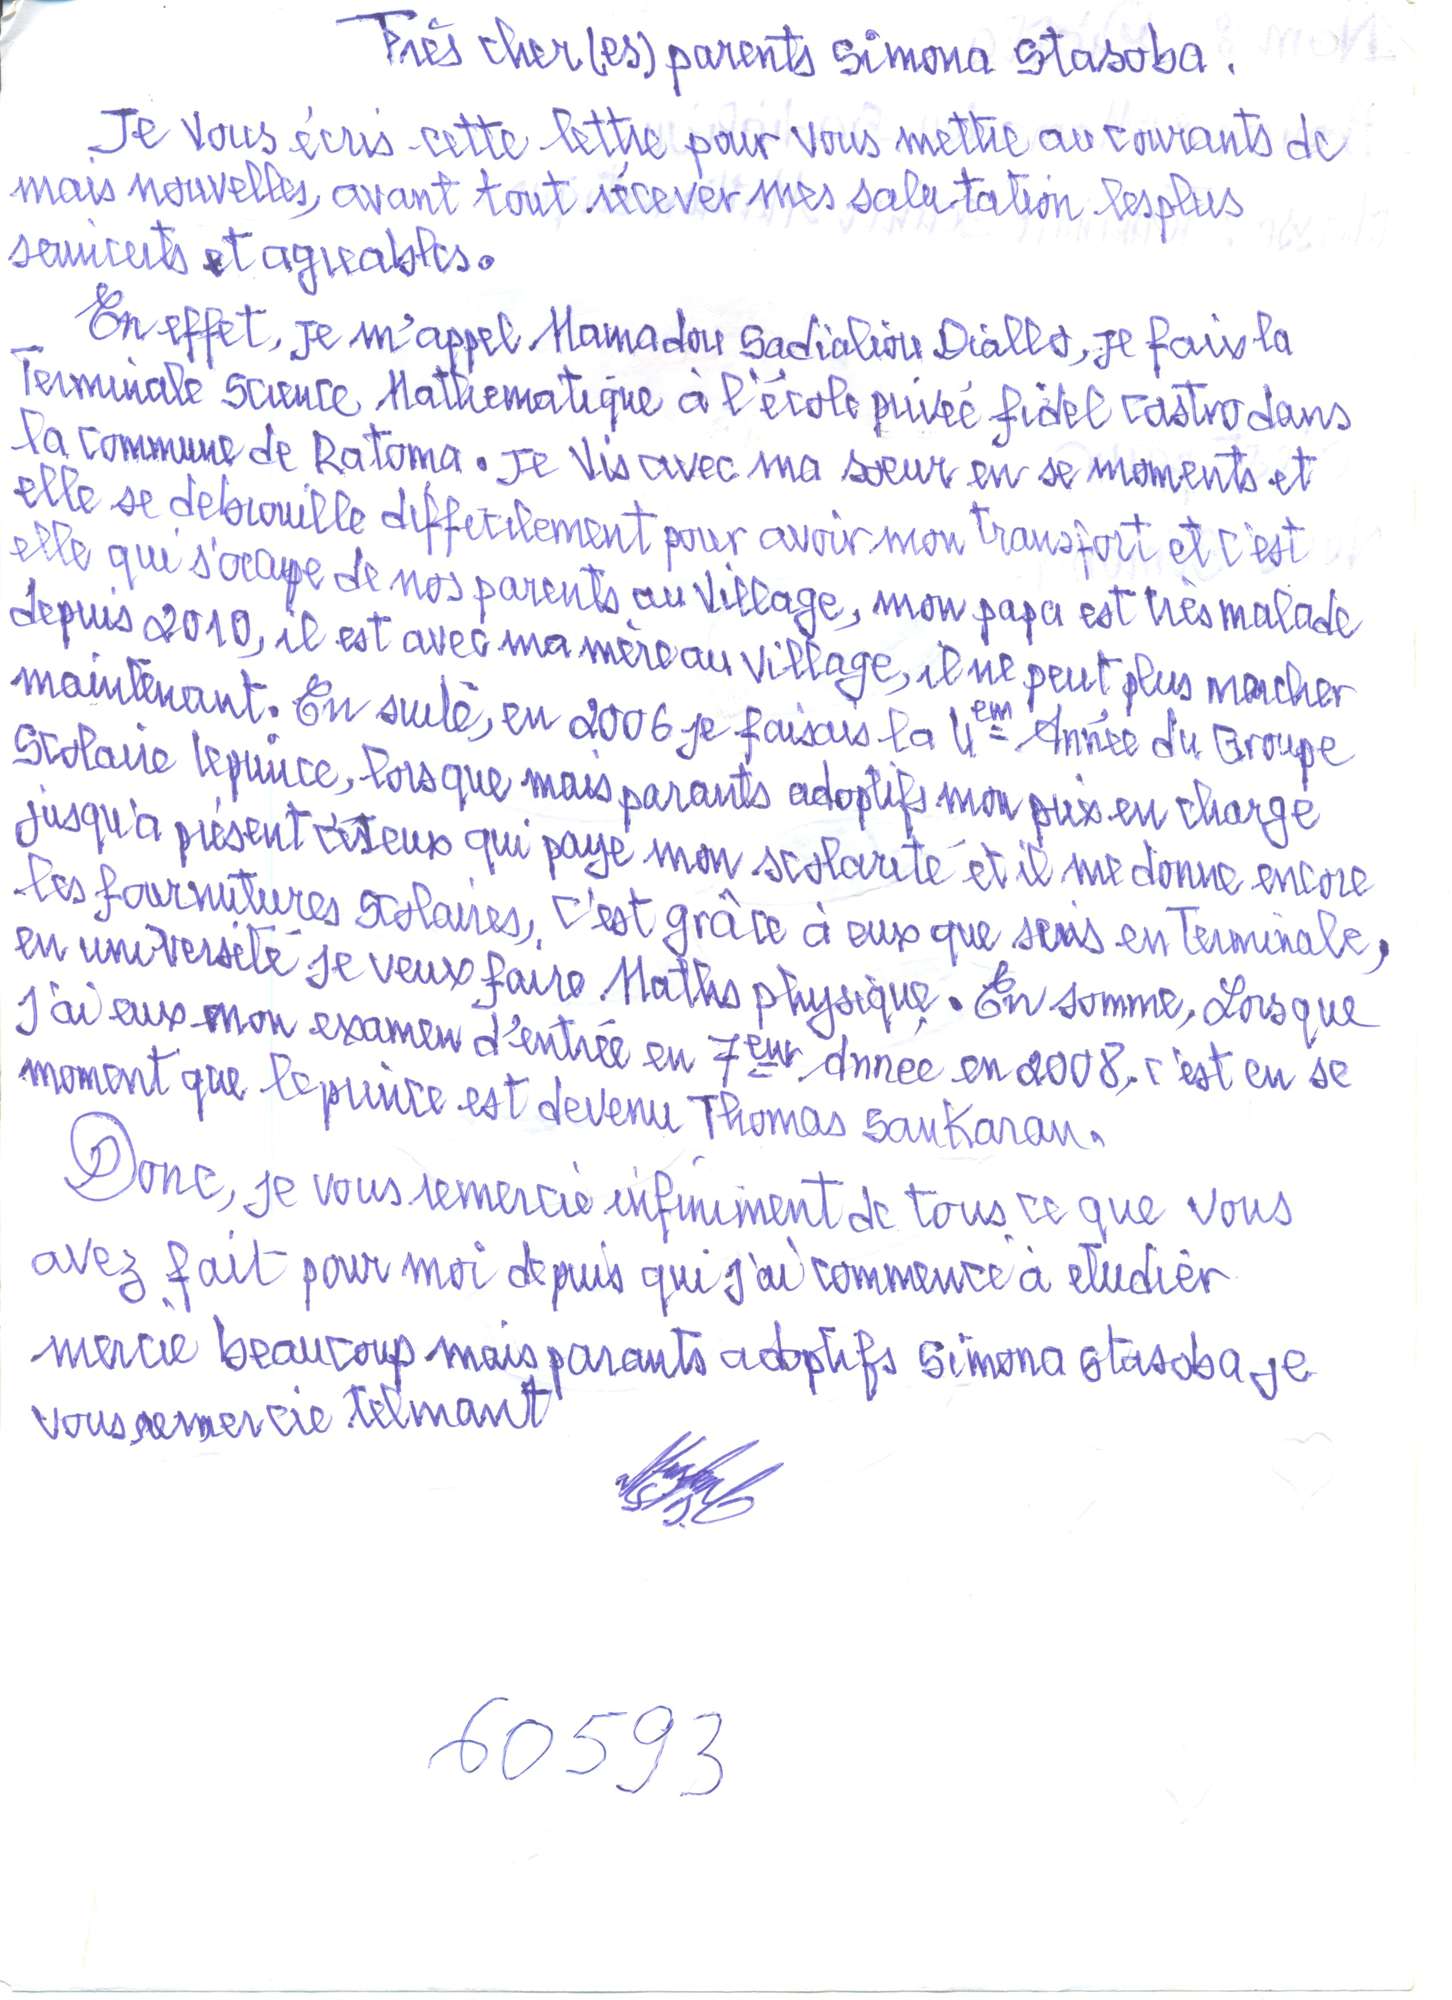 Très cher(es) parents Simona Stasoba.
Je vous écris cette lettre pour vous mettre au courants de
mais nouvelles, avant tout récever mes salutation les plus
et agreables.
En effet, je m'appel Mamadou Sadialiou Diallo, je fais la
Terminale Science Mathematique à l'école privée fidel castro dans
la commune de Ratoma. Je vis avec ma sœur en se moments et
elle se debrouille difficilement pour avoir mon transport et c'est
elle qui s'ocaupe de nos parents au village, mon papa est très malade
depuis 2010, il est avec ma mère au village, il ne peut plus marcher
maintenant. En suite, en 2006 je faisais la 4em Année du Groupe
Scolaire leprince, lorsque mais parants adoptifs mon prix en charge
jusqu'à présent c'est eux qui paye mon scolarité et il me donne encore
les fournitures scolaires, c'est grâce à eux que suis en Terminale,
en université je veux faire Maths physique. En somme, Lorsque
j'ai eux mon examen d'entrée en 7eur Année en 2008, c'est en se
moment que leprince est devenu Thomas Sankaran.
Donc, je vous remercie infiniment de tous ce que vous
avez fait pour moi depuis qui j'ai commencé à etudier
mercie beaucoup mais parants adoptifs Simona Stasoba je
vous remercie telmant
60593